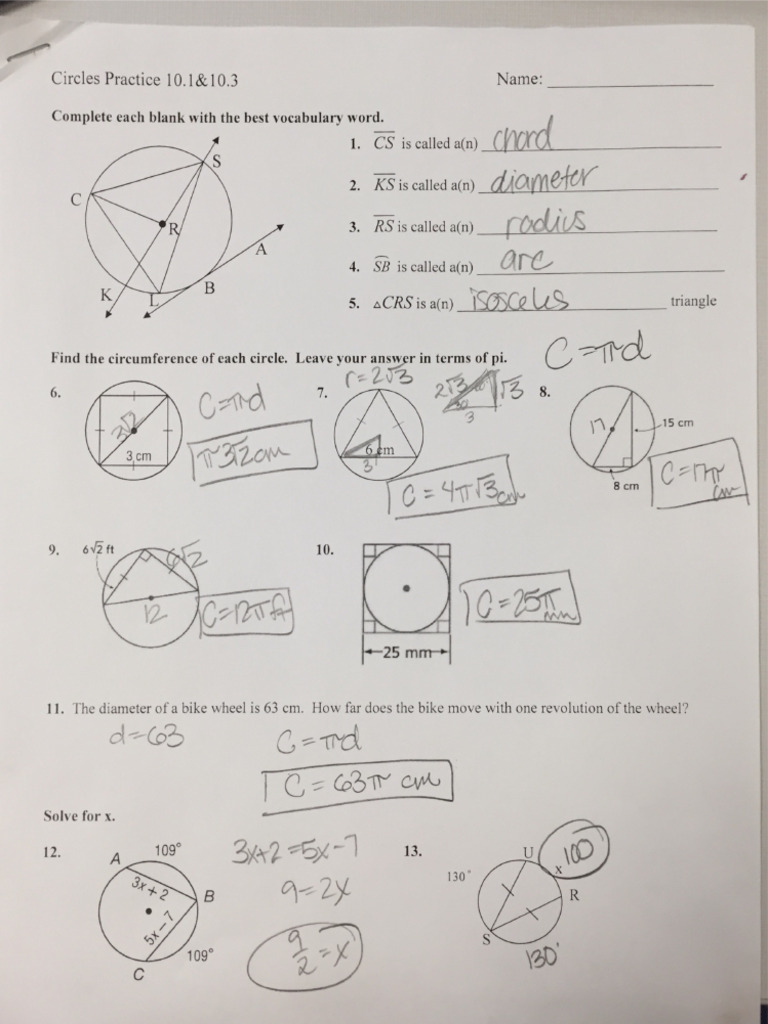 Circles Practice 10.1&10.3 Name:
Complete each blank with the best vocabulary word.
S
C
R
A
K
L
B
1. CS is called a(n) chord
2. KS is called a(n) diameter
3. RS is called a(n) radius
4. SB is called a(n) arc
5. △CRS is a(n) isosceles triangle
Find the circumference of each circle. Leave your answer in terms of pi.
C=πd
6.
3√2
3 cm
C=πd
π3√2cm
7.
r=2√3
6 cm
3
2√3
√3
3
C=4π√3cm
8.
17
15 cm
8 cm
C=17π cm
9.
6√2 ft
6√2
12
C=12πft
10.
25 mm
C=25π mm
11. The diameter of a bike wheel is 63 cm. How far does the bike move with one revolution of the wheel?
d=63 C=πd
C=63π cm
Solve for x.
12.
A
109°
3x+2
B
5x-7
109°
C
3x+2=5x-7
9=2x
9/2=x
13.
130°
U
x
100°
R
S
130°